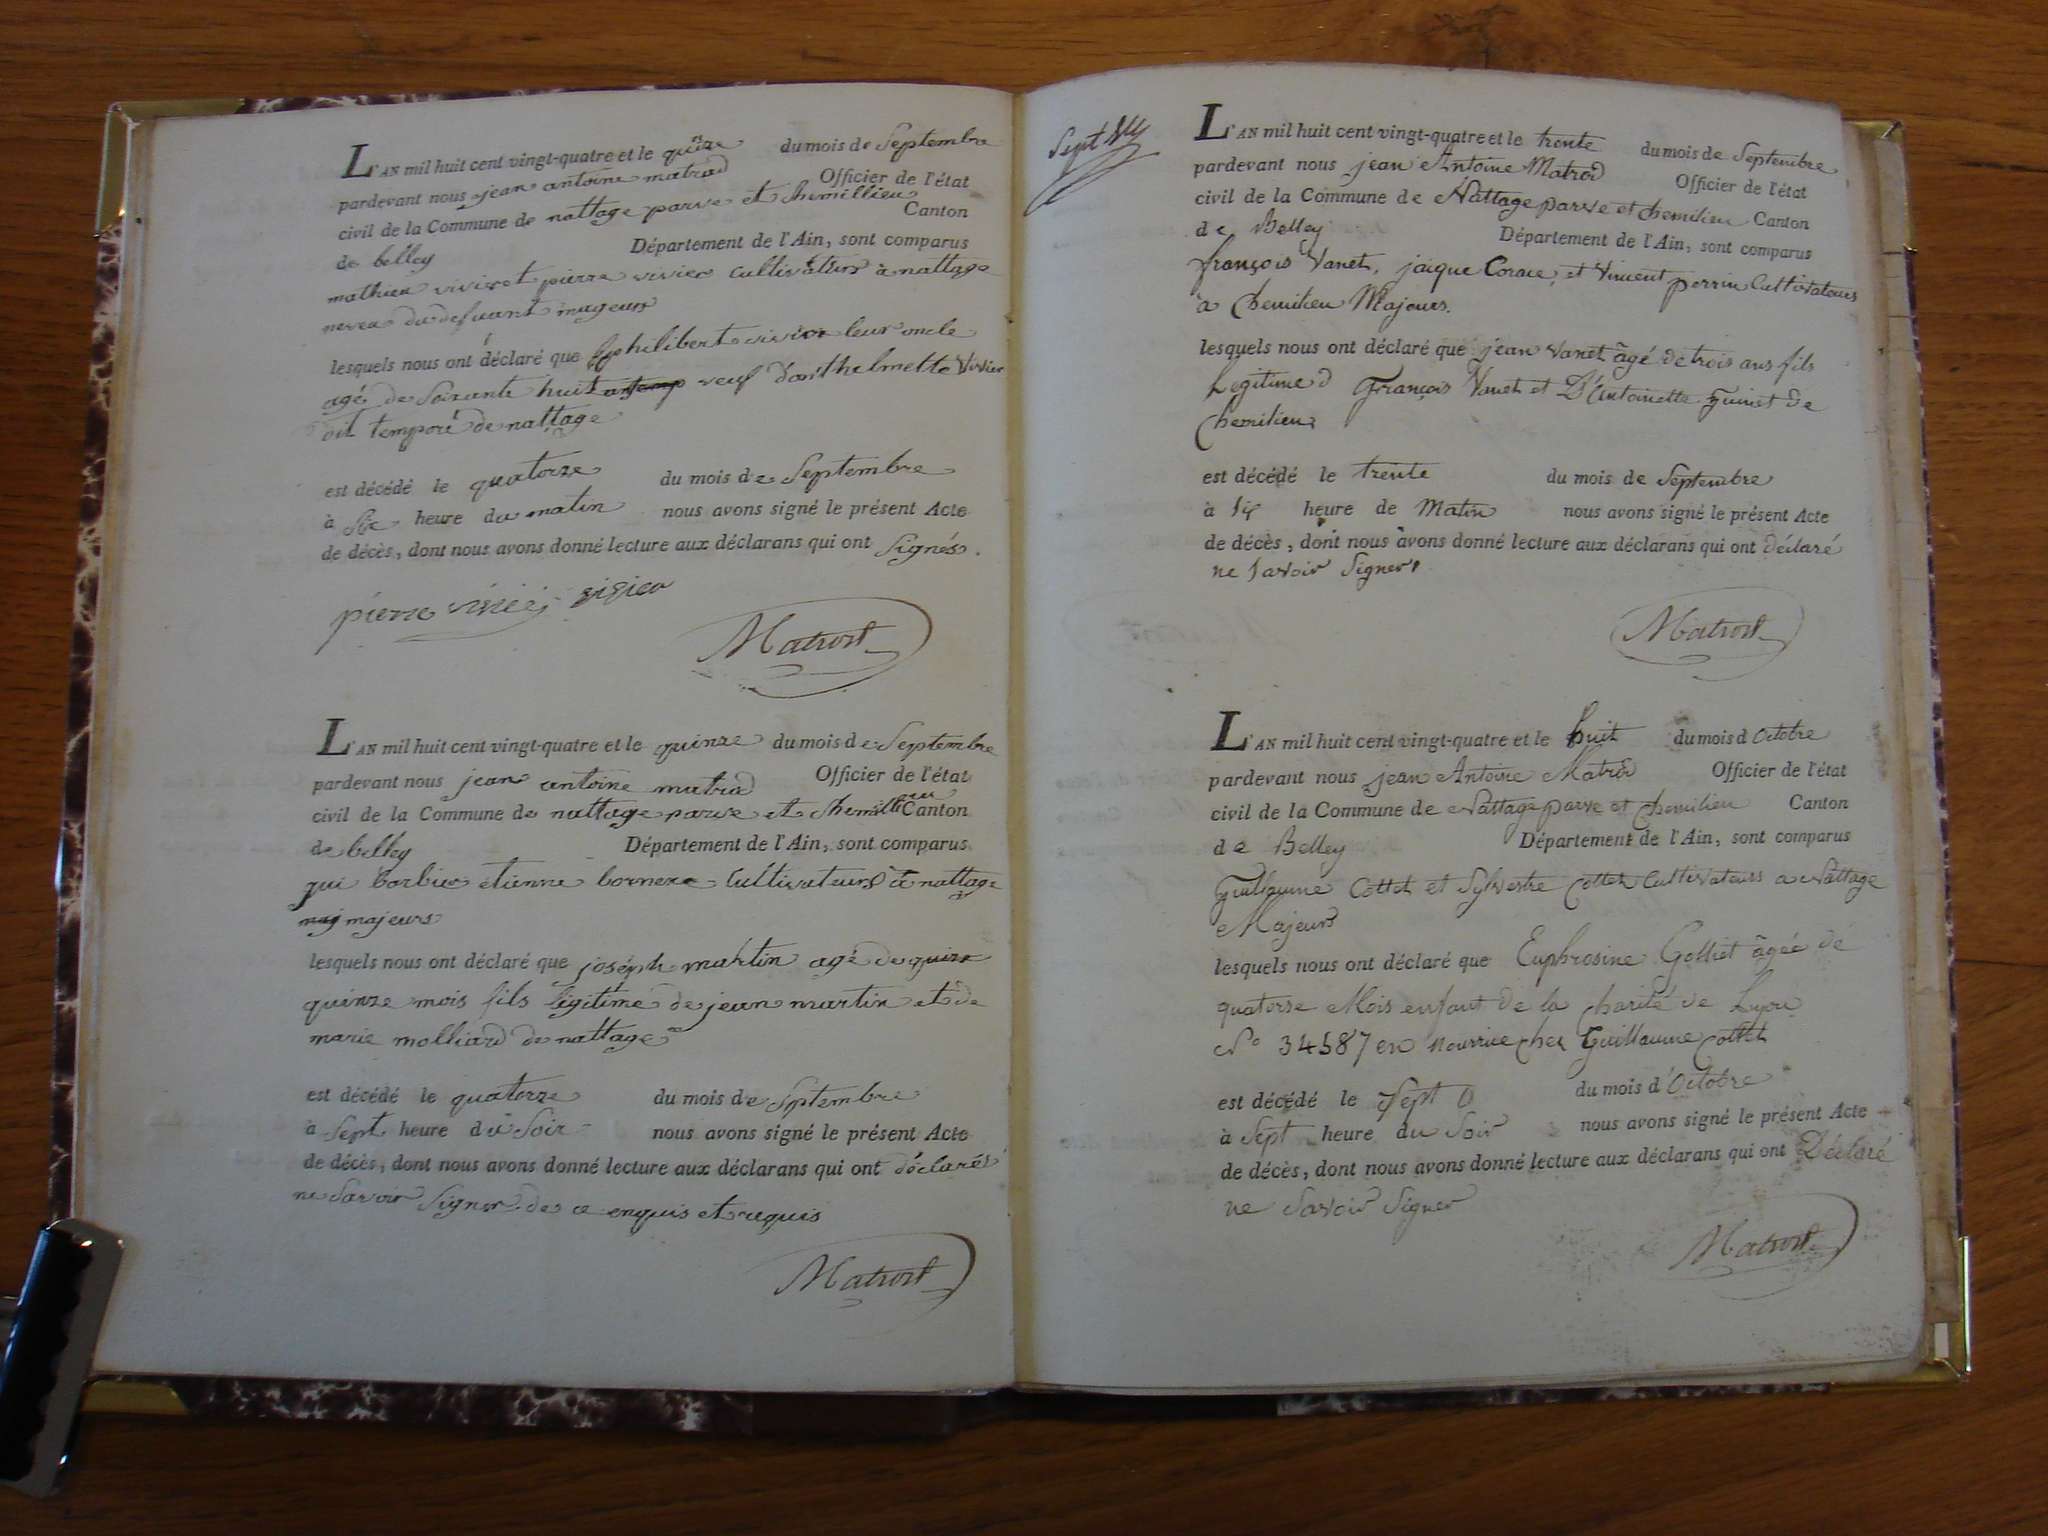 L'AN mil huit cent vingt-quatre et le quinze du mois de Septembre
pardevant nous jean antoine matrad Officier de l'état
civil de la Commune de nattage parve et chemillieu Canton
de belley Département de l'Ain, sont comparus
mathieu vivier et pierre vivier cultivateurs à nattage
neveu du defuant mageurs
lesquels nous ont déclaré que philibert vivier leur oncle
agé de soixante huit veuf d'anthelmette vivier
de nattage
est décédé le quatorze du mois de Septembre
à six heure du matin nous avons signé le présent Acte
de décès, dont nous avons donné lecture aux déclarans qui ont signés.
pierre vivier vivier
Matrod
L'AN mil huit cent vingt-quatre et le quinze du mois de Septembre
pardevant nous jean antoine matrad Officier de l'état
civil de la Commune de nattage parve et chemillieu Canton
de belley Département de l'Ain, sont comparus
gui borbier etienne bornere cultivateurs à nattage
maj majeurs
lesquels nous ont déclaré que joséph martin agé de quinz
quinze mois fils légitime de jean martin et de
marie molliard de nattage
est décédé le quatorze du mois de Septembre
à Sept heure du Soir nous avons signé le présent Acte
de décès, dont nous avons donné lecture aux déclarans qui ont déclarés
ne savoir signer de ce enquis et requis
Matrod
Sept
L'AN mil huit cent vingt-quatre et le trente du mois de Septembre
pardevant nous jean Antoine Matrod Officier de l'état
civil de la Commune de Nattage parve et chemilieu Canton
de Belley Département de l'Ain, sont comparus
françois Vanet, jacque Coraie, et Vincent perrin Cultivateurs
à Chemilieu Majeurs.
lesquels nous ont déclaré que jean Vanet âgé de trois ans fils
Legitime d François Vanet et D'Antoinette Guinet de
Chemilieu
est décédé le trente du mois de Septembre
à six heure de Matin nous avons signé le présent Acte
de décès, dont nous avons donné lecture aux déclarans qui ont déclaré
ne savoir signer
Matrod
L'AN mil huit cent vingt-quatre et le huit du mois d Octobre
pardevant nous jean Antoine Matrod Officier de l'état
civil de la Commune de Nattage parve et Chemilieu Canton
de Belley Département de l'Ain, sont comparus
Guillaume Cottet et Sylvestre Cottet Cultivateurs a Nattage
Majeurs
lesquels nous ont déclaré que Euphrosine Golliet âgée de
quatorse Mois enfant de la charité de Lyon
No 34587 en nourrice chez Guillaume Cottet
est décédé le Sept du mois d'Octobre
à Sept heure du Soir nous avons signé le présent Acte
de décès, dont nous avons donné lecture aux déclarans qui ont Déclaré
ne Savoir Signer
Matrod